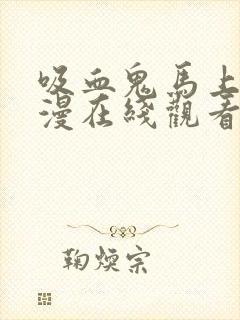 吸血鬼馬上
漫在綫觀看
鞠煐宗